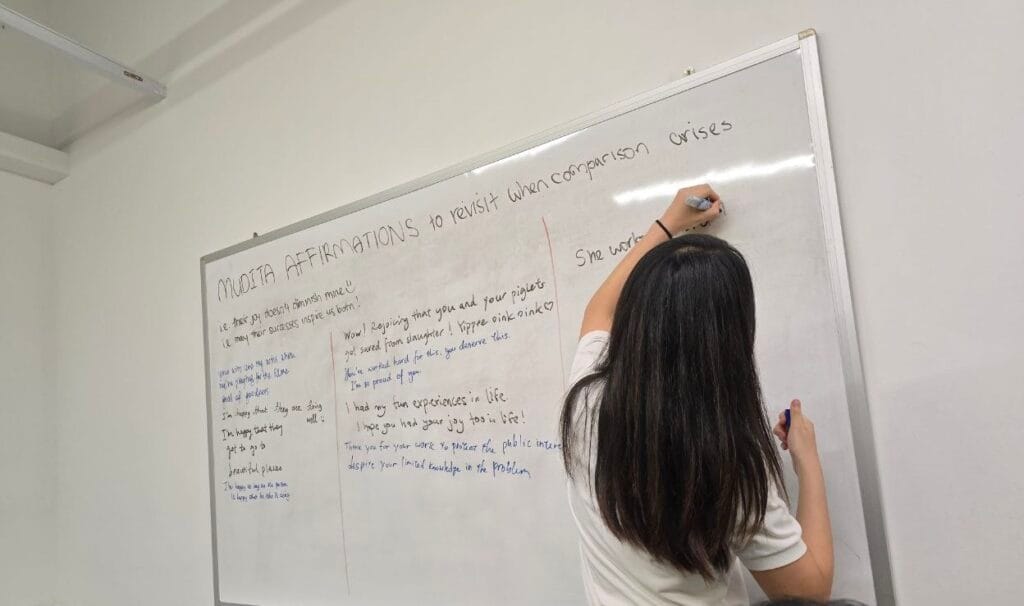 MUDITA AFFIRMATIONS to revisit when comparison arises
i.e their joy doesn't diminish mine :)
i.e may their successes inspire us both!
your wins are my wins when
we're playing for the same
goal of goodness
I'm happy that they are doing
well!
I'm happy that they
got to go to
beautiful places
I'm happy as long as the person
is happy
Wow! Rejoicing that you and your piglets
got saved from slaughter! Yippee oink oink ♡
You've worked hard for this. You deserve this.
I'm so proud of you.
I had my fun experiences in life
I hope you had your joy too in life!
Thank you for your work to protect the public
despite your limited knowledge in the problem
She